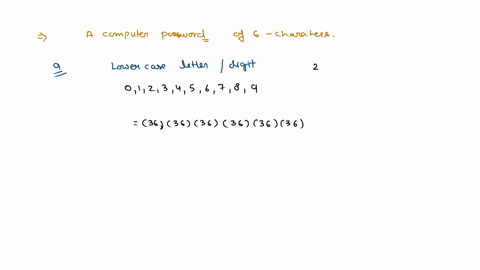 ⇒ A computer password of 6-charaters.
a Lower case letter / digit 2
0,1,2,3,4,5,6,7,8,9
= (36) (36) (36) (36) (36) (36)